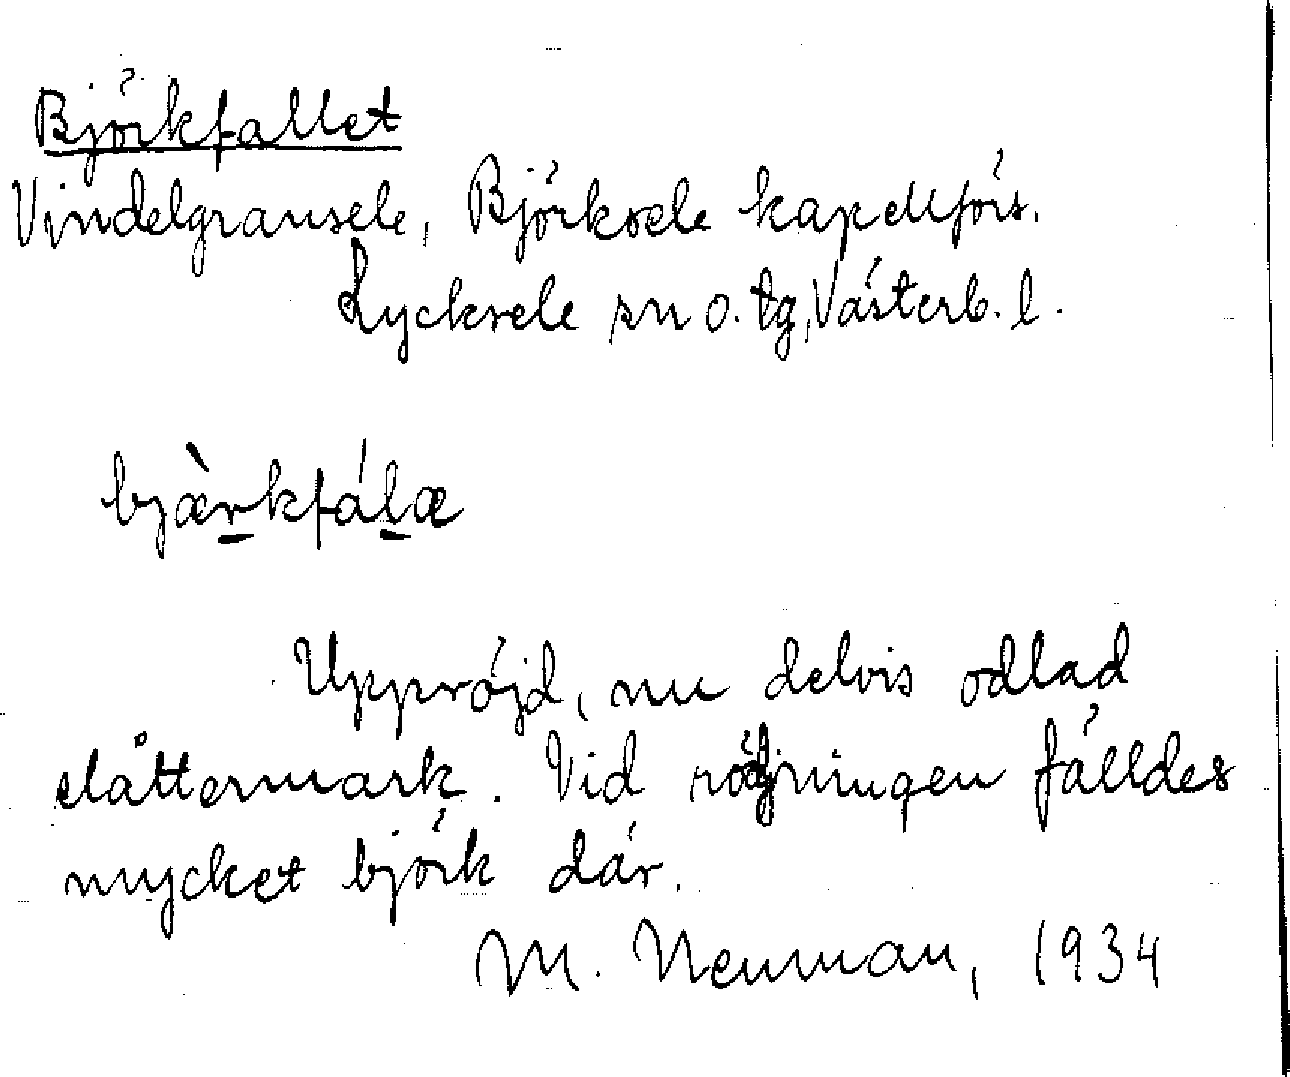 Björkfallet
Vindelgransele, Björksele kapellförs.
Lycksele sn o. tg, Västerb. l.
bjæ̀r̲kfál̲æ
Uppröjd, nu delvis odlad
slåttermark. Vid röjningen fälldes
mycket björk där.
M. Neuman, 1934